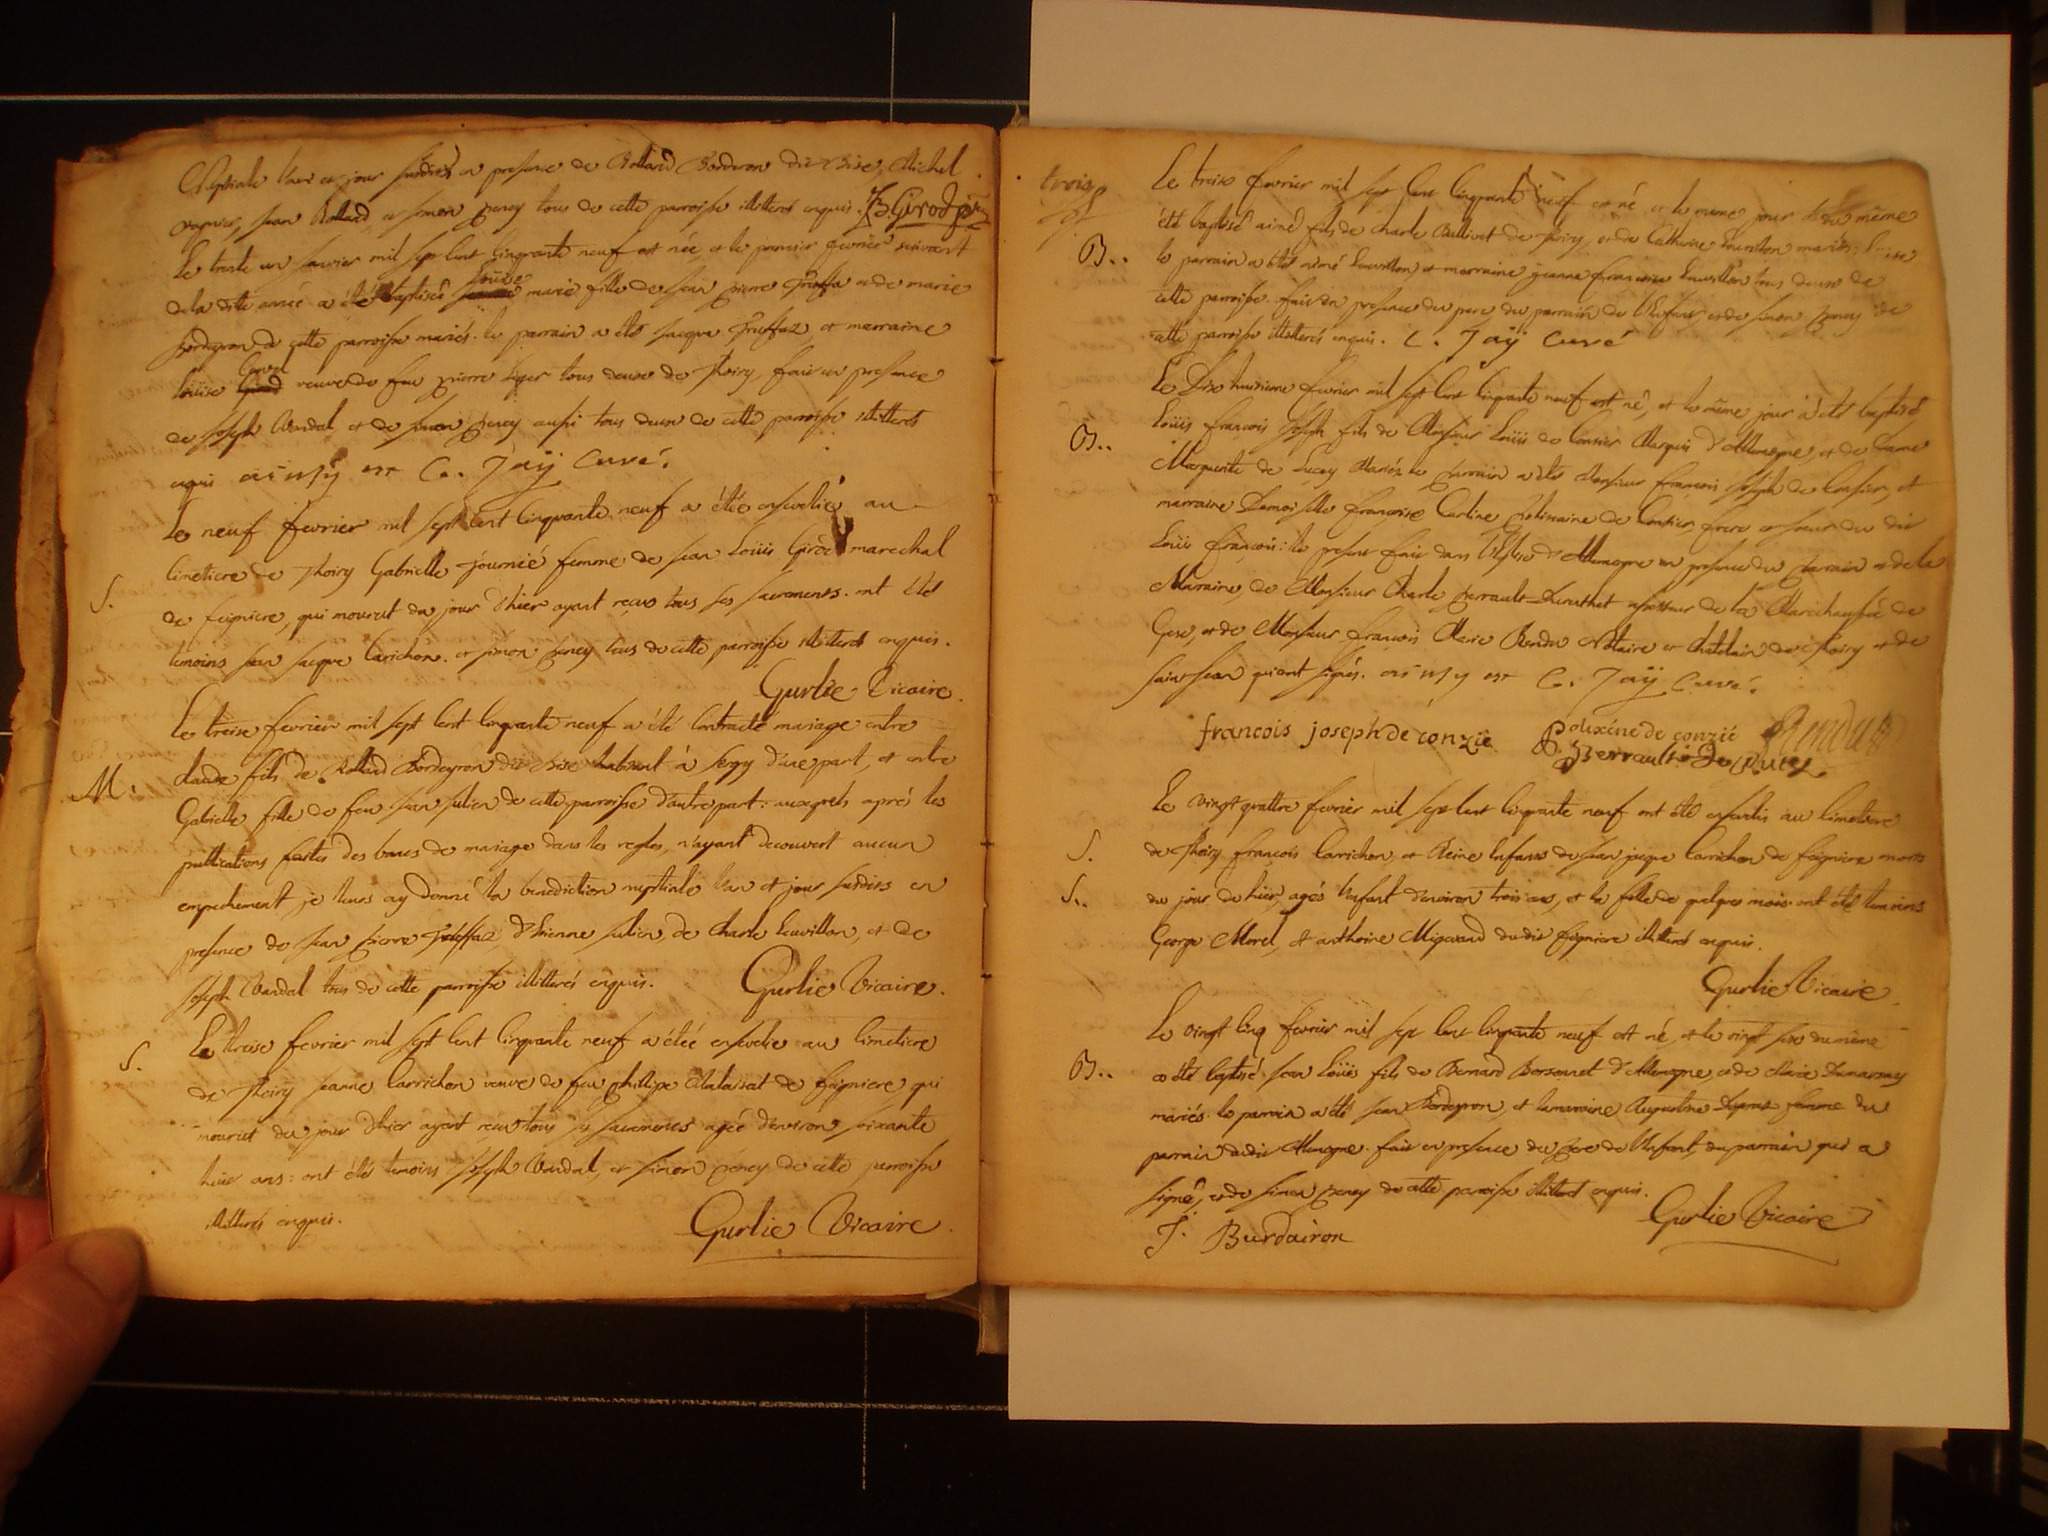 Nuptiale l'an et jour susdits en presence de Rolland Bordeyron dit Bise, Michel
Jean Rolland, et simon pency tous de cette parroisse illitterés enquis. Girod
Le trente un janvier mil sept cent cinquante neuf est née, et le premier fevrier suivant
de la dite année a été baptisée Louise marie fille de jean pierre truffa et de marie
bordeyron de cette parroisse mariés. le parrain a été jacque truffaz, et marraine
loüise veuve de feu pierre tous deux de Thoiry, fait en presence
de joseph Vandal et de simon pency aussi tous deux de cette parroisse illitterés
enquis ainsy est C. Jaÿ Curé.
Le neuf fevrier mil sept cent cinquante neuf a étée ensevelie au
S.
cimetiere de Thoiry Gabrielle journié femme de jean Loüis Girod marechal
de feigniere, qui mourut du jour d'hier ayant reçus tous ses sacrements. ont été
temoins jean jacque Carichon. et simon pency tous de cette parroisse illitterés enquis.
Gurlie Vicaire.
Le treise fevrier mil sept cent cinquante neuf a été contracté mariage entre
M.
claude fils de Rolland Bordeyron dit Bise habitant à sergy d'une part, et entre
Gabrielle fille de feu jean julien de cette parroisse d'autre part: auxquels aprés les
publications faites des bancs de mariage dans les regles, n'ayant decouvert aucun
empechement, je leurs ay donné la benediction nuptiale l'an et jour susdits en
presence de jean pierre truffaz d'Etienne julien, de Charle Leuvillon, et de
joseph Vandal tous de cette parroisse illitterés enquis. Gurlie Vicaire.
S.
Le treise fevrier mil sept cent cinquante neuf a étée ensevelie au cimetiere
de Thoiry jeanne Carrichon veuve de feu phillipe de feigniere qui
mourut du jour d'hier ayant reçu tous ses sacrements agée d'environ soixante
huit ans: ont été temoins joseph Vandal, et simon pency de cette parroisse
illitterés enquis. Gurlie Vicaire.
trois
Le treise fevrier mil sept cent cinquante neuf est né et le meme jour du même
été baptisé aimé fils de charle Bullivat de Thoiry, et de Catherine Leuvillon mariés:
B..
le parrain a été aimé Leuvillon et marraine jeanne francoise Leuvillon tous deux de
cette parroisse. fait en presence du pere du parrain de l'Enfant et de simon pency de
cette parroisse illitterés enquis. C. Jaÿ Curé
Le Dix huitieme fevrier mil sept cent cinquante neuf est né, et le même jour a été baptisé
B..
Loüis francois joseph fils de Monsieur Loüis de Conzier Marquis d'Allemogne, et de Dame
Marguerite de Lucey Mariés. le parrain a été Monsieur francois joseph de Conzier, et
marraine Demoiselle françoise Carline de Conzier, frere et soeur du dit
Loüis francois: le present fait dans l'Eglise d'Allemogne en presence du parrain et de la
Maraine, de Monsieur Charle perrault assesseur de la Marechaussée de
Gex, et de Monsieur francois Marie Rendu Notaire et Chatelain de Thoiry et de
Saint jean qui ont signés. ainsy est C. Jaÿ Curé.
francois joseph de conzié Polixéne de conzié Rendu
Perrault
Le vingt quattre fevrier mil sept cent cinquante neuf ont été ensevelis au cimetiere
S.
de Thoiry françois Carrichon, et Reine Enfants de jean jacque Carrichon de feigniere morts
S..
du jour de hier, agés l'enfant d'environ trois ans, et la fille de quelques mois. ont été temoins
George Morel, et anthoine dudit feigniere illitterés enquis.
Gurlie Vicaire
Le vingt cinq fevrier mil sept cent cinquante neuf est né, et le vingt six du même
B..
a été baptisé jean Loüis fils de Bernard Borsonnet d'Allemogne, et de Marie
mariés. le parrain a été jean Bordeyron, et la maraine femme du
parrain dudit Allemogne. fait en presence du pere de l'Enfant, du parrain qui a
signé, et de simon pency de cette parroisse illitterés enquis.
Gurlie Vicaire
J. Burdairon